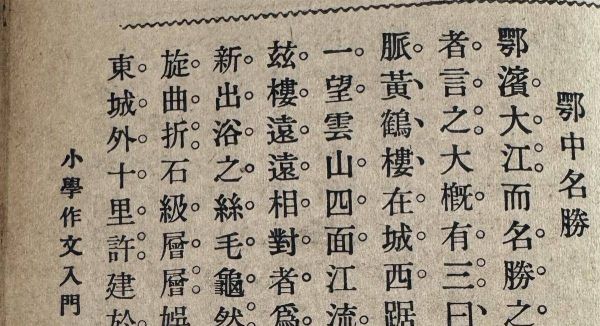 鄂中名勝
鄂濱大江而名勝之
者言之大槪有三曰
脈黃鶴樓在城西踞
一望雲山四面江流
茲樓遠遠相對者爲
新出浴之絲毛龜然
旋曲折石級層層娛
東城外十里許建於
小學作文入門